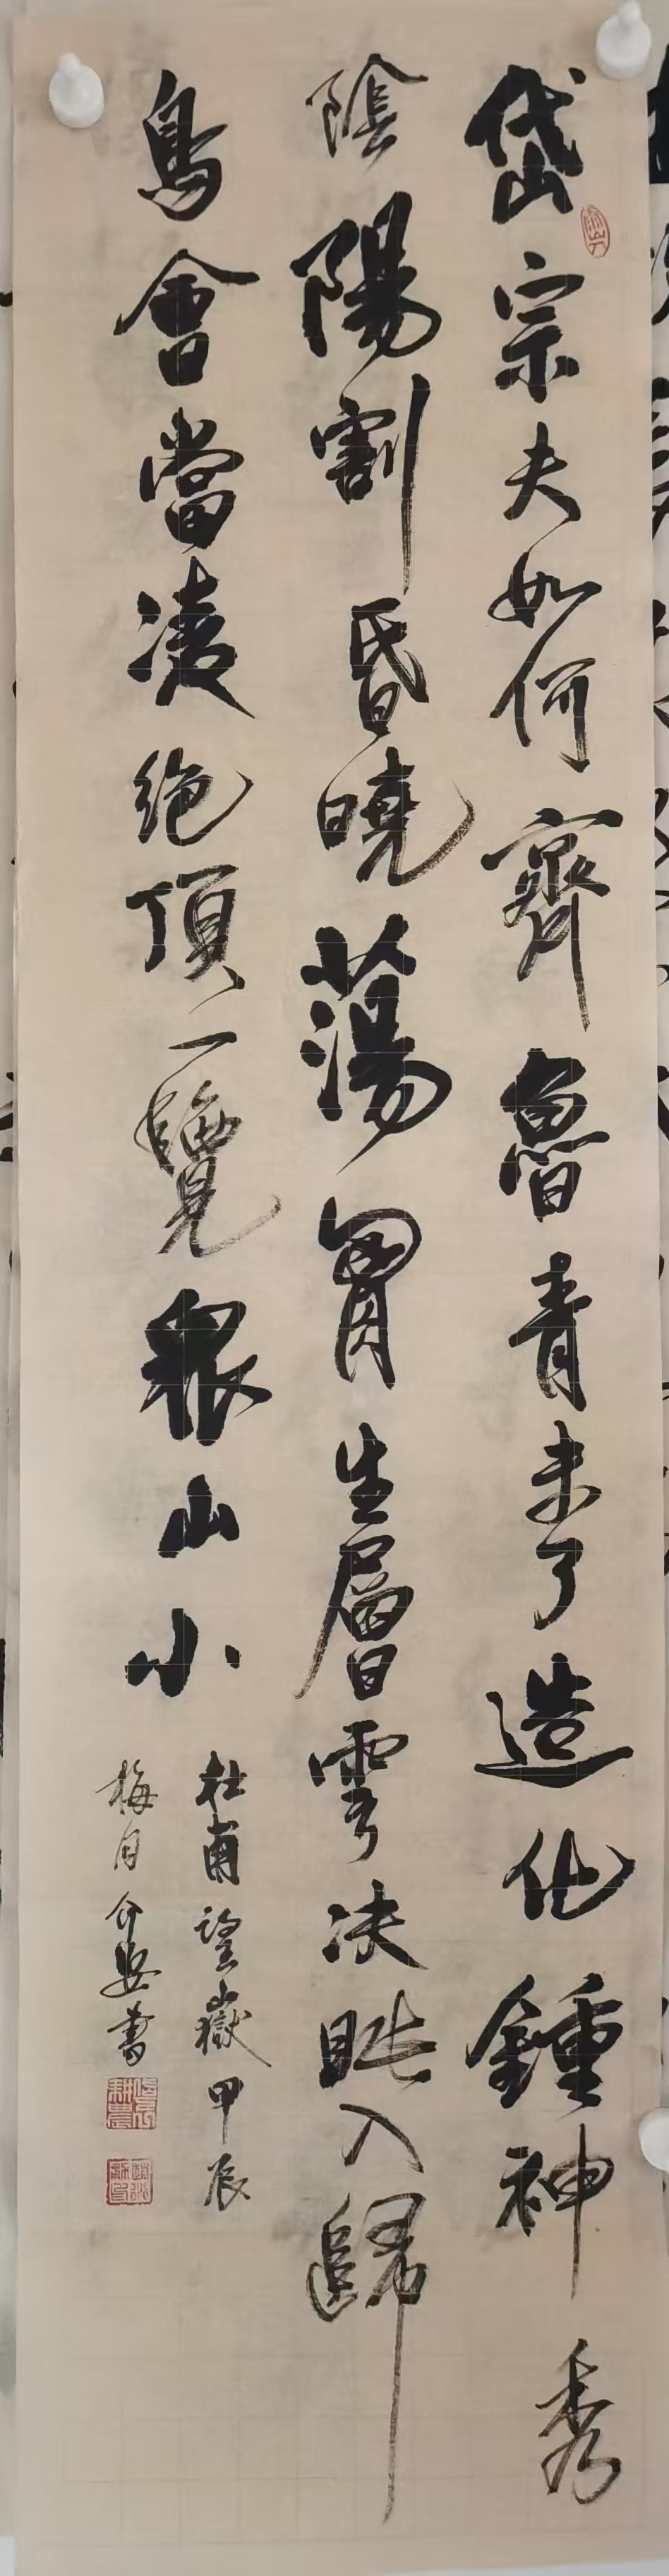 岱宗夫如何齊魯青未了造化鍾神秀
陰陽割昏曉蕩胃生層雲决眦入歸
鳥會當凌絕頂一覽眾山小
杜甫望嶽甲辰
梅月介安書